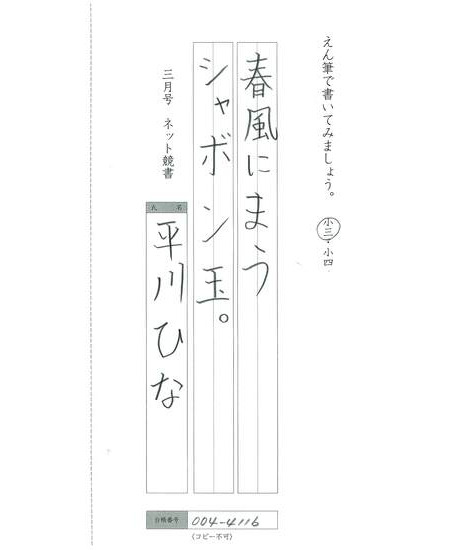 えん筆で書いてみましょう。 小三・小四
春風にまう
シャボン玉。
三月号 ネット競書
氏 名
平川ひな
台帳番号 004-4116
(コピー不可)